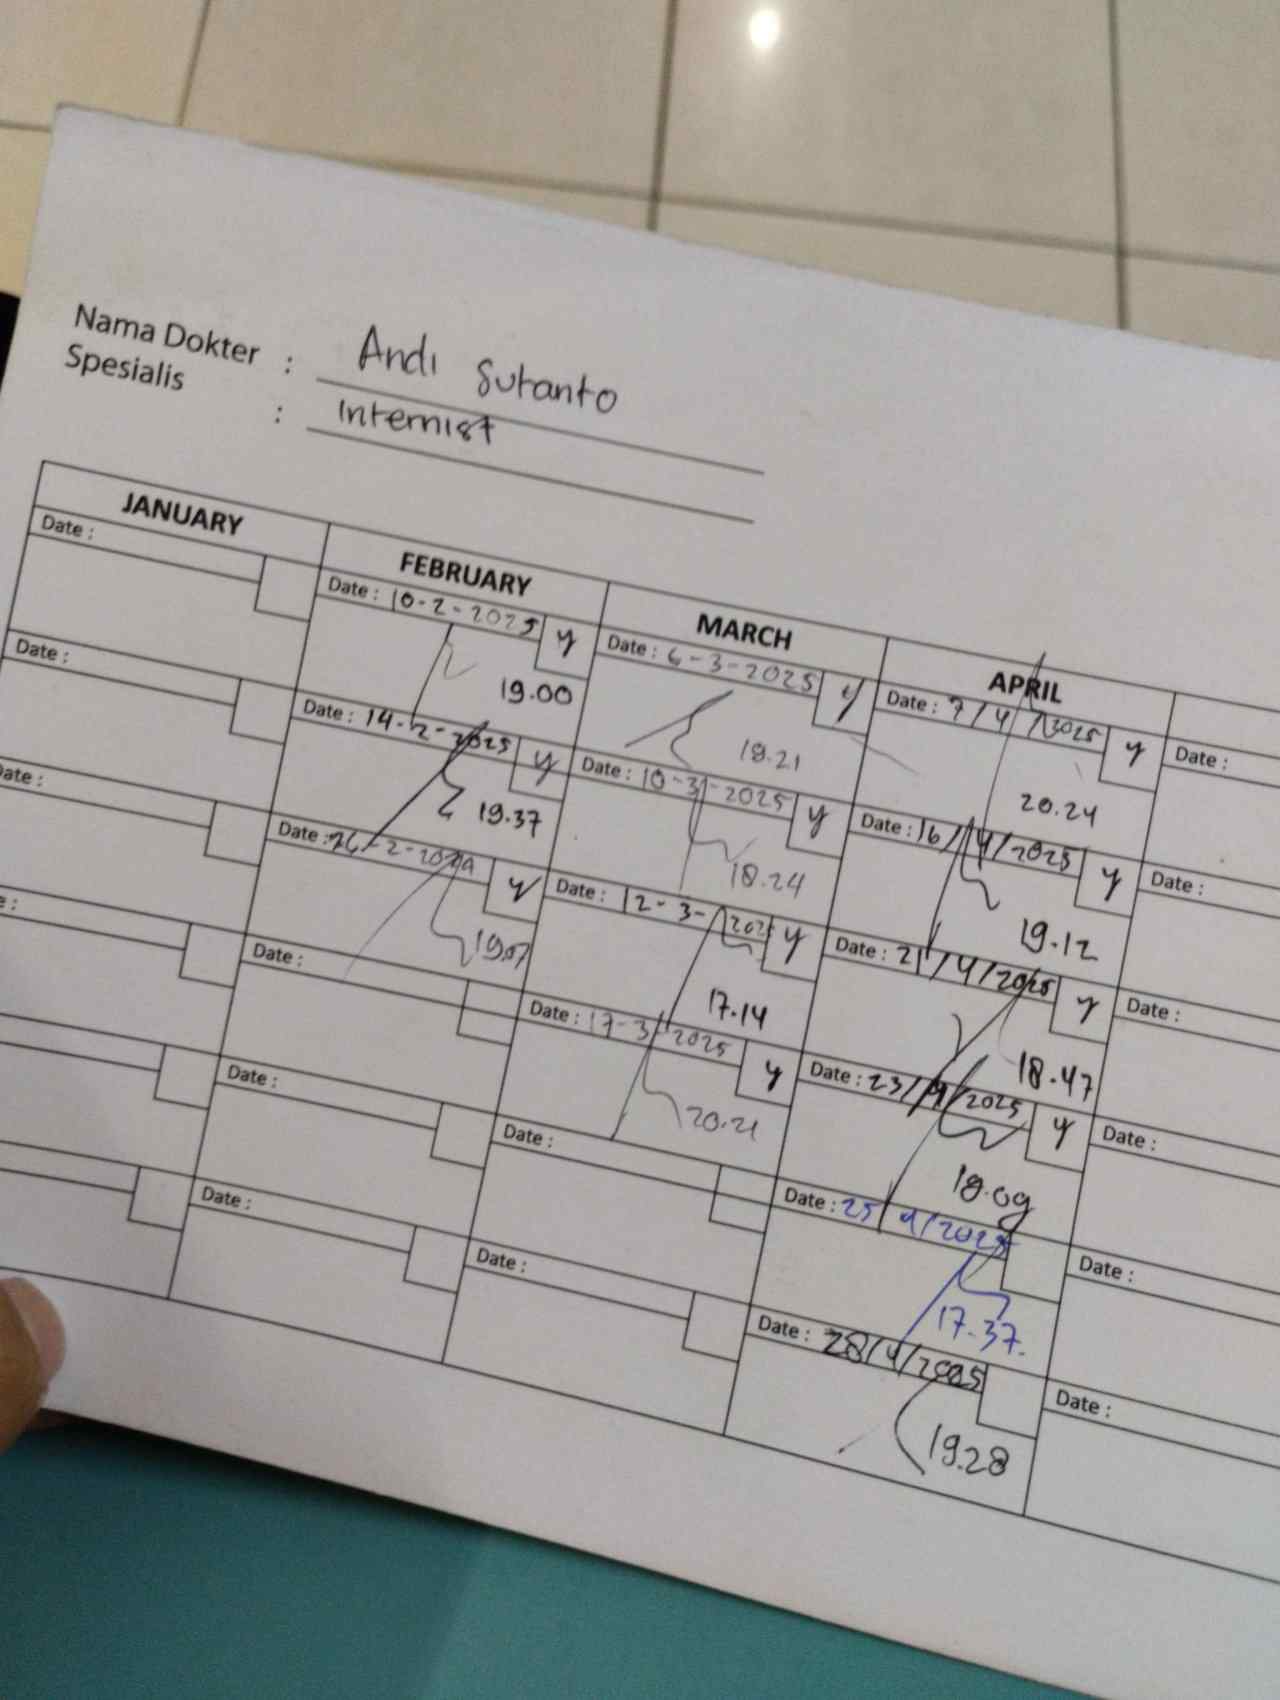 Nama Dokter : Andi Sutanto
Spesialis : Internist
JANUARY FEBRUARY MARCH APRIL
Date :
Date :
Date :
Date : 10-2-2025 y
19.00
Date : 14-2-2025 y
19.37
Date : y
19.07
Date :
Date :
Date :
Date : 6-3-2025 y
18.21
Date : 10-3-2025 y
18.24
Date : 12-3-2025 y
17.14
Date : 17-3-2025 y
20.21
Date :
Date :
Date : 7/4/2025 y
20.24
Date : 16/4/2025 y
19.12
Date : 21/4/2025 y
18.47
Date : 23/4/2025 y
18.09
Date : 25/4/2025
17.37.
Date : 28/4/2025
19.28
Date :
Date :
Date :
Date :
Date :
Date :